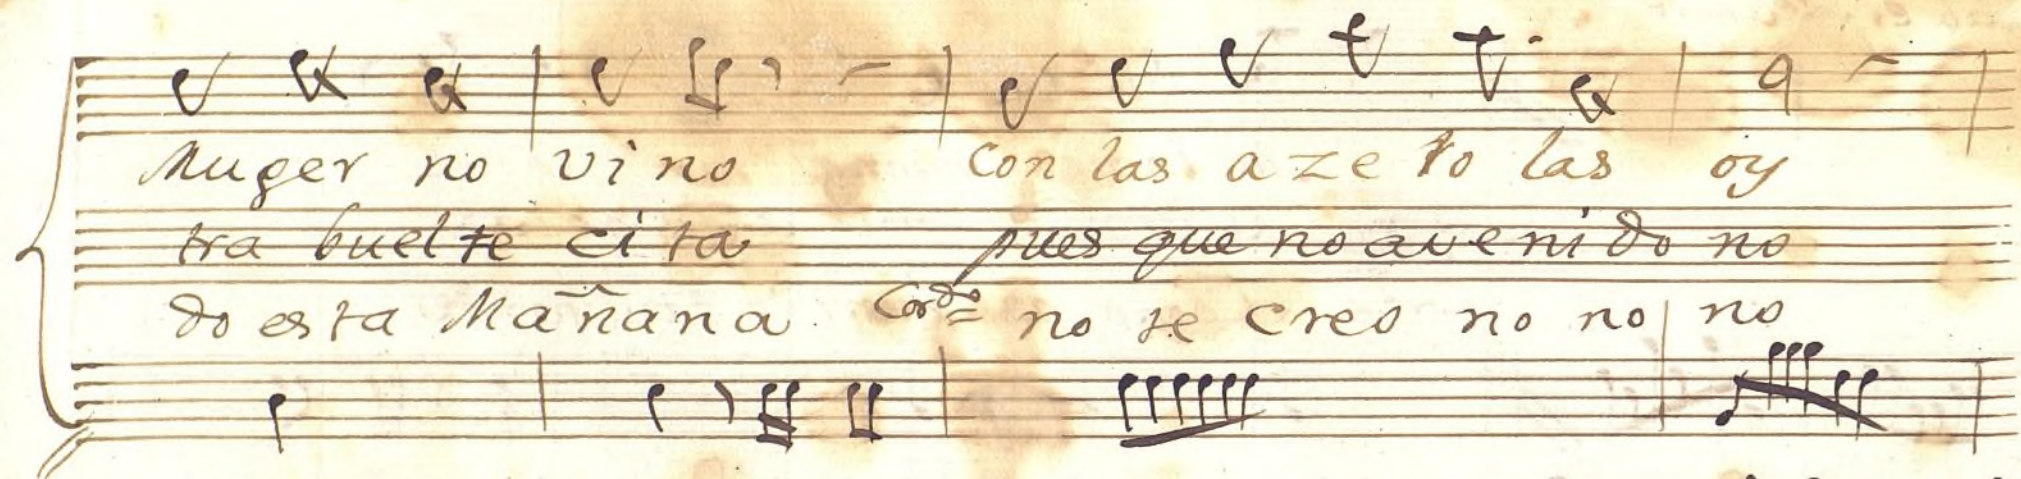 Muger no vi no con las a ze ro las oy
tra buel te ci ta pues que no a veni do no
do esta Mañana. Cor.do = no te creo no no no